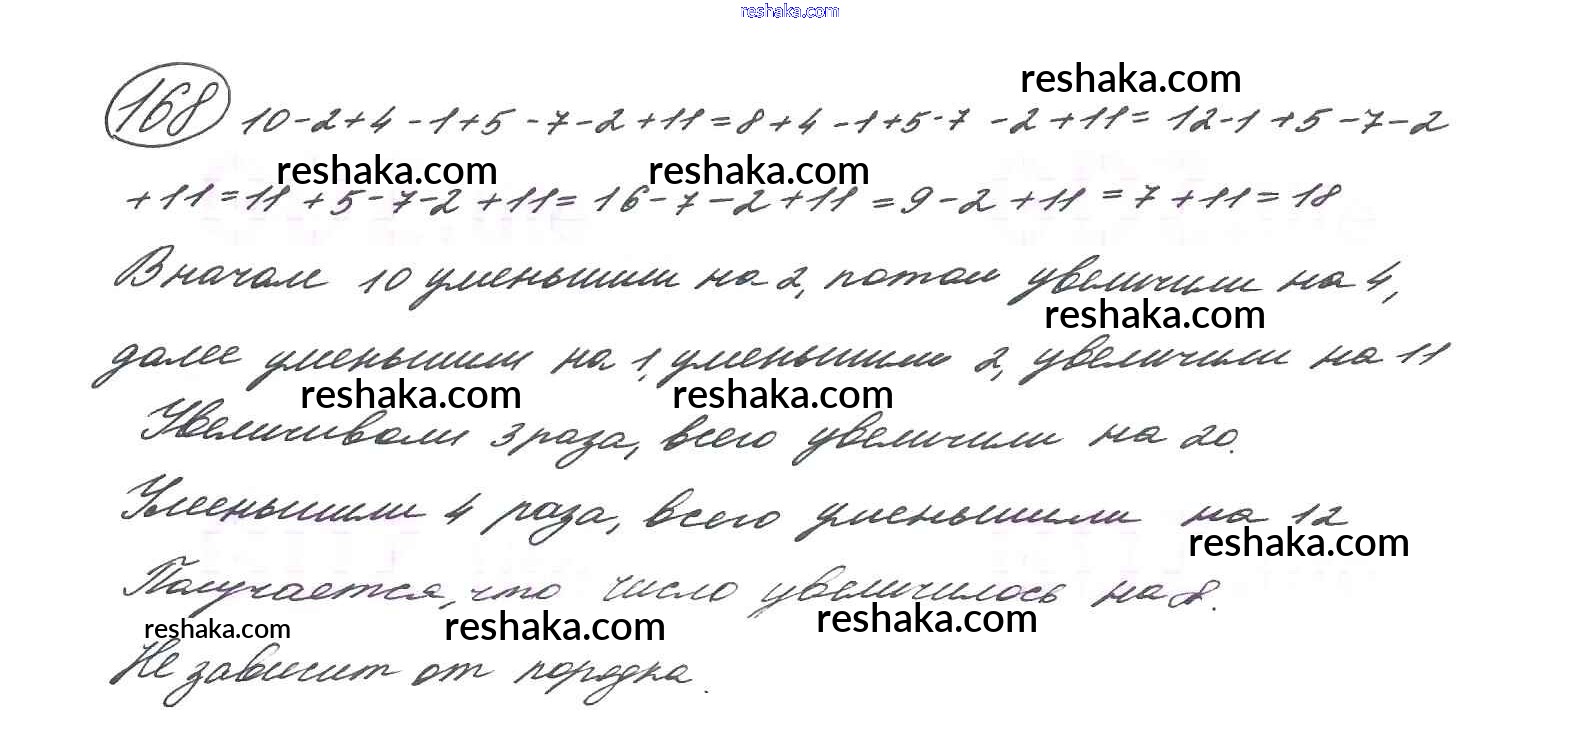 reshaka.com
reshaka.com
168 10-2+4-1+5-7-2+11=8+4-1+5-7-2+11=12-1+5-7-2
reshaka.com reshaka.com
+11=11+5-7-2+11=16-7-2+11=9-2+11=7+11=18
Вначале 10 уменьшили на 2, потом увеличили на 4,
reshaka.com
далее уменьшили на 1, уменьшили 2, увеличили на 11
reshaka.com reshaka.com
Увеличивали 3 раза, всего увеличили на 20.
Уменьшили 4 раза, всего уменьшили на 12
reshaka.com
Получается, что число увеличилось на 8.
reshaka.com reshaka.com reshaka.com
Не зависит от порядка.